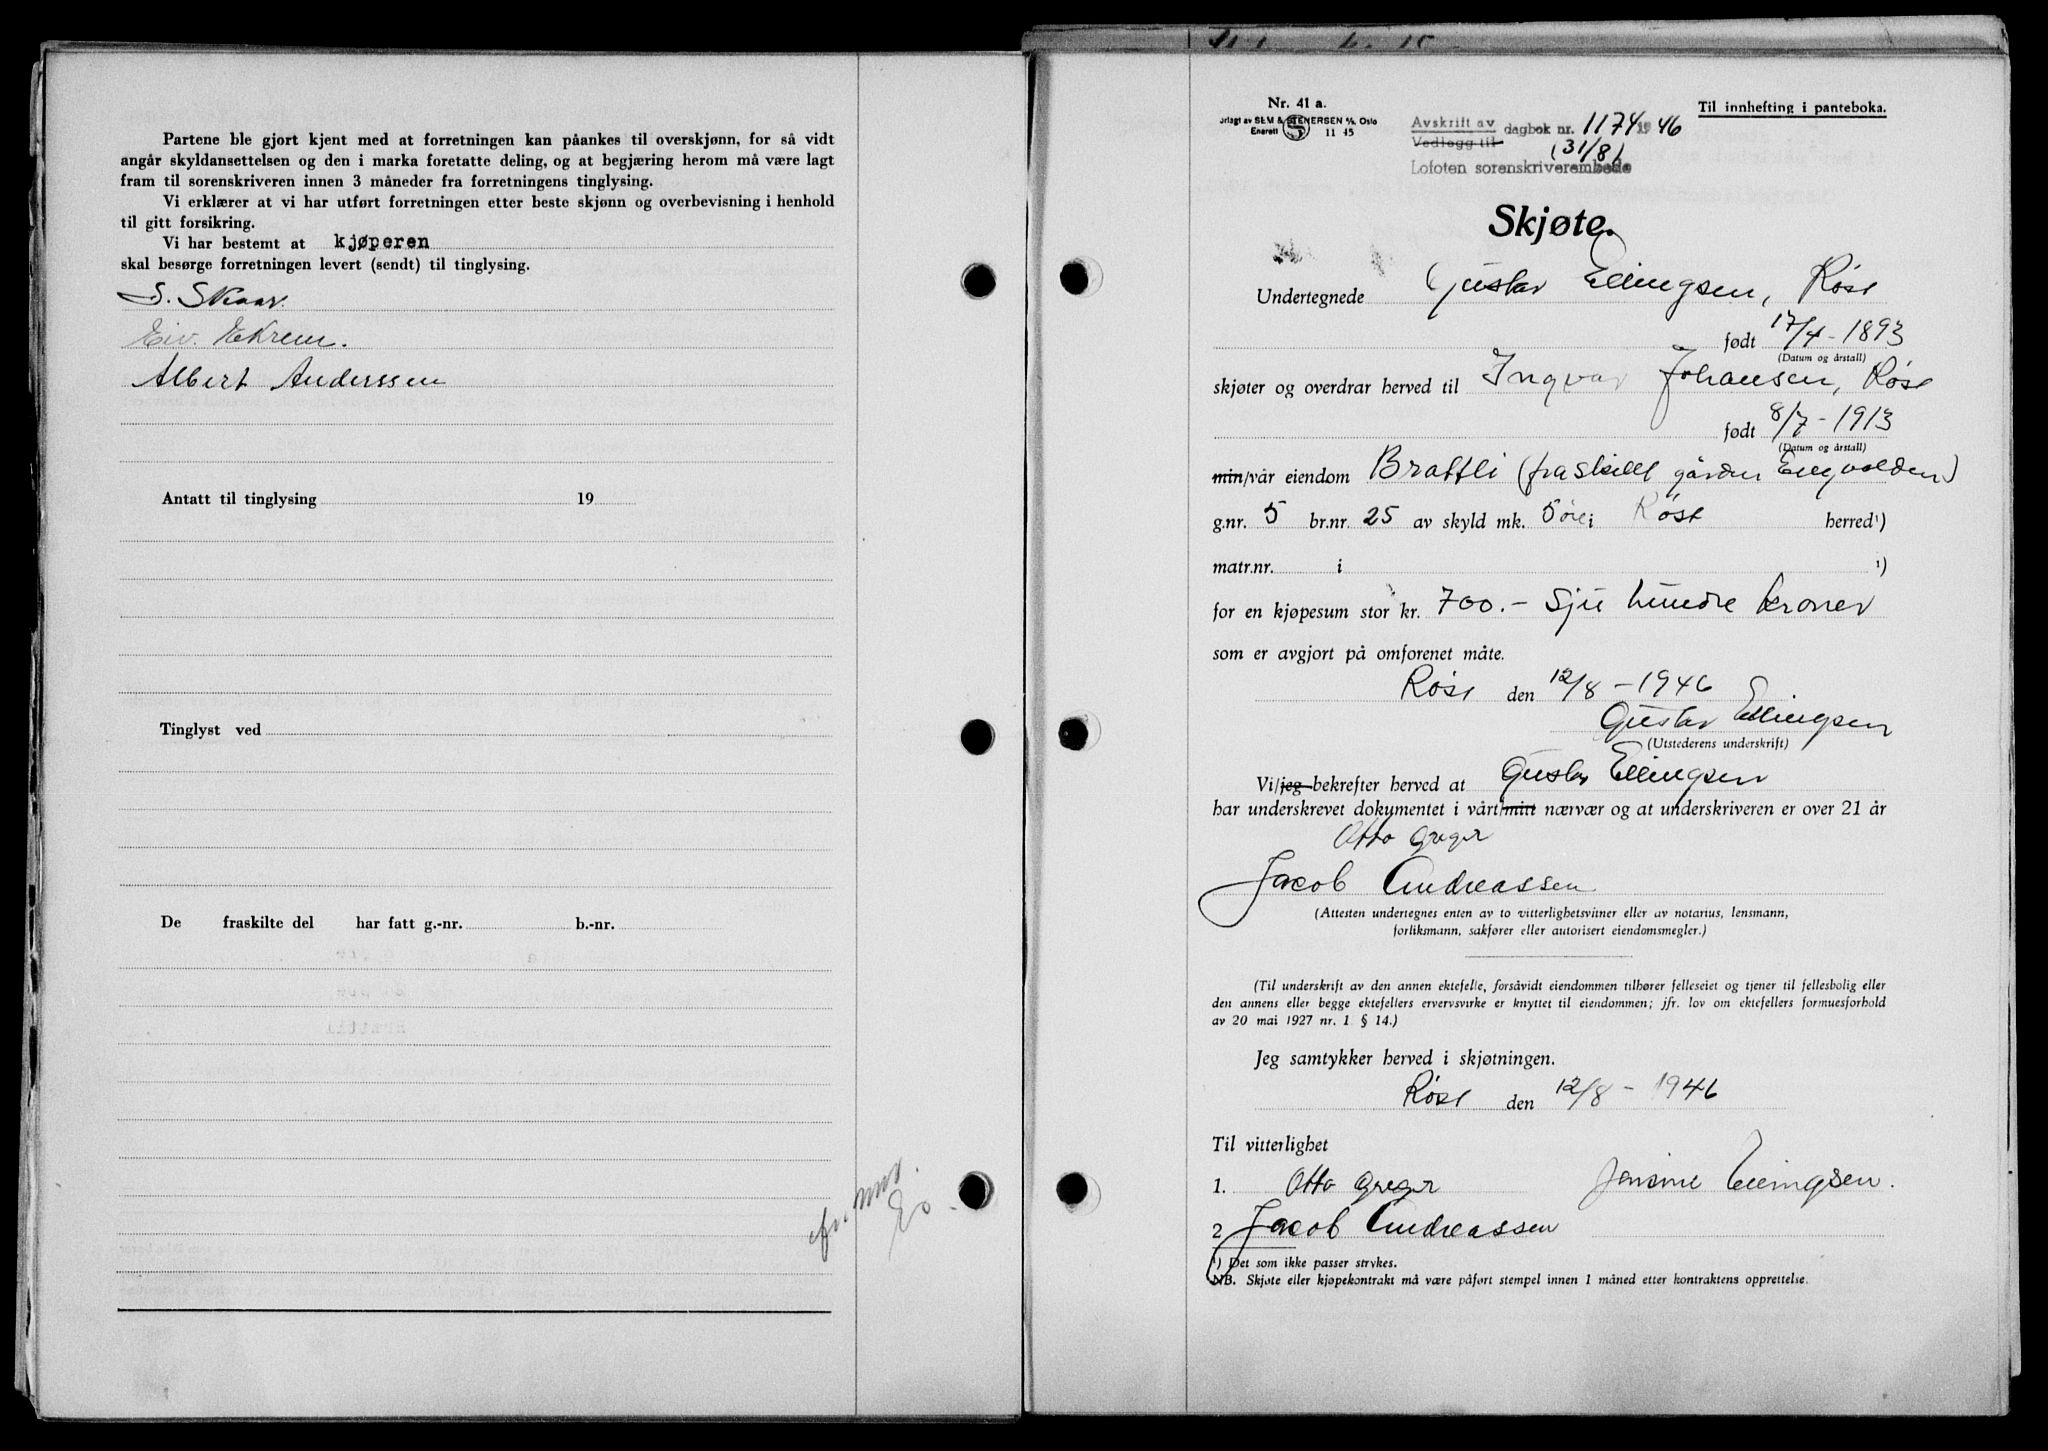 Partene ble gjort kjent med at forretningen kan påankes til overskjønn, for så vidt
angår skyldansettelsen og den i marka foretatte deling, og at begjæring herom må være lagt
fram til sorenskriveren innen 3 måneder fra forretningens tinglysing.
Vi erklærer at vi har utført forretningen etter beste skjønn og overbevisning i henhold
til gitt forsikring.
Vi har bestemt at kjøperen
skal besørge forretningen levert (sendt) til tinglysing.
S. Skaar.
Eiv. Ekrem.
Albert Anderssen
Antatt til tinglysing 19
Tinglyst ved
De fraskilte del har fatt g.-nr. b.-nr.
Nr. 41 a.
orlagt av SEM & STENERSEN A/s, Oslo
Enerett S 11 45
Til innhefting i panteboka.
Avskrift av
Vedlegg til
dagbok nr. 1174 1946
(31/8)
Lofoten sorenskriverembede
Skjøte.
Undertegnede Gustav Ellingsen, Røst
født 17/4-1893
(Datum og årstall)
skjøter og overdrar herved til Ingvar Johansen, Røst
født 8/7-1913
(Datum og årstall)
min/vår eiendom Brattli (fraskillt gården Engvolden)
g.nr. 5 br.nr. 25 av skyld mk. 5 øre i Røst herred¹)
matr.nr. i ¹)
for en kjøpesum stor kr. 700.- sju hundre kroner
som er avgjort på omforenet måte.
Røst den 12/8-1946
Gustav Ellingsen
(Utstederens underskrift)
Vi/jeg bekrefter herved at Gustav Ellingsen
har underskrevet dokumentet i vårt/mitt nærvær og at underskriveren er over 21 år
Otto Greger
Jacob Andreassen
(Attesten undertegnes enten av to vitterlighetsvitner eller av notarius, lensmann,
forliksmann, sakfører eller autorisert eiendomsmegler.)
(Til underskrift av den annen ektefelle, forsåvidt eiendommen tilhører felleseiet og tjener til fellesbolig eller
den annens eller begge ektefellers ervervsvirke er knyttet til eiendommen; jfr. lov om ektefellers formuesforhold
av 20 mai 1927 nr. 1 § 14.)
Jeg samtykker herved i skjøtningen.
Røst den 12/8-1946
Til vitterlighet
1. Otto Greger Jensine Ellingsen.
2 Jacob Andreassen
¹) Det som ikke passer strykes.
NB. Skjøte eller kjøpekontrakt må være påført stempel innen 1 måned etter kontraktens opprettelse.